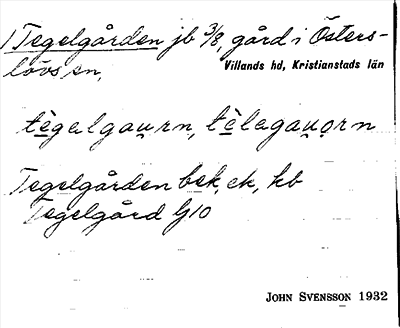 1 Tegelgården jb 3/8, gård i Östers-
lövs sn,
Villands hd, Kristianstads län
tègalgau̯rn, tèlagau̯o̯rn
Tegelgården bsk, ek, kb
Tegelgård G10
JOHN SVENSSON 1932